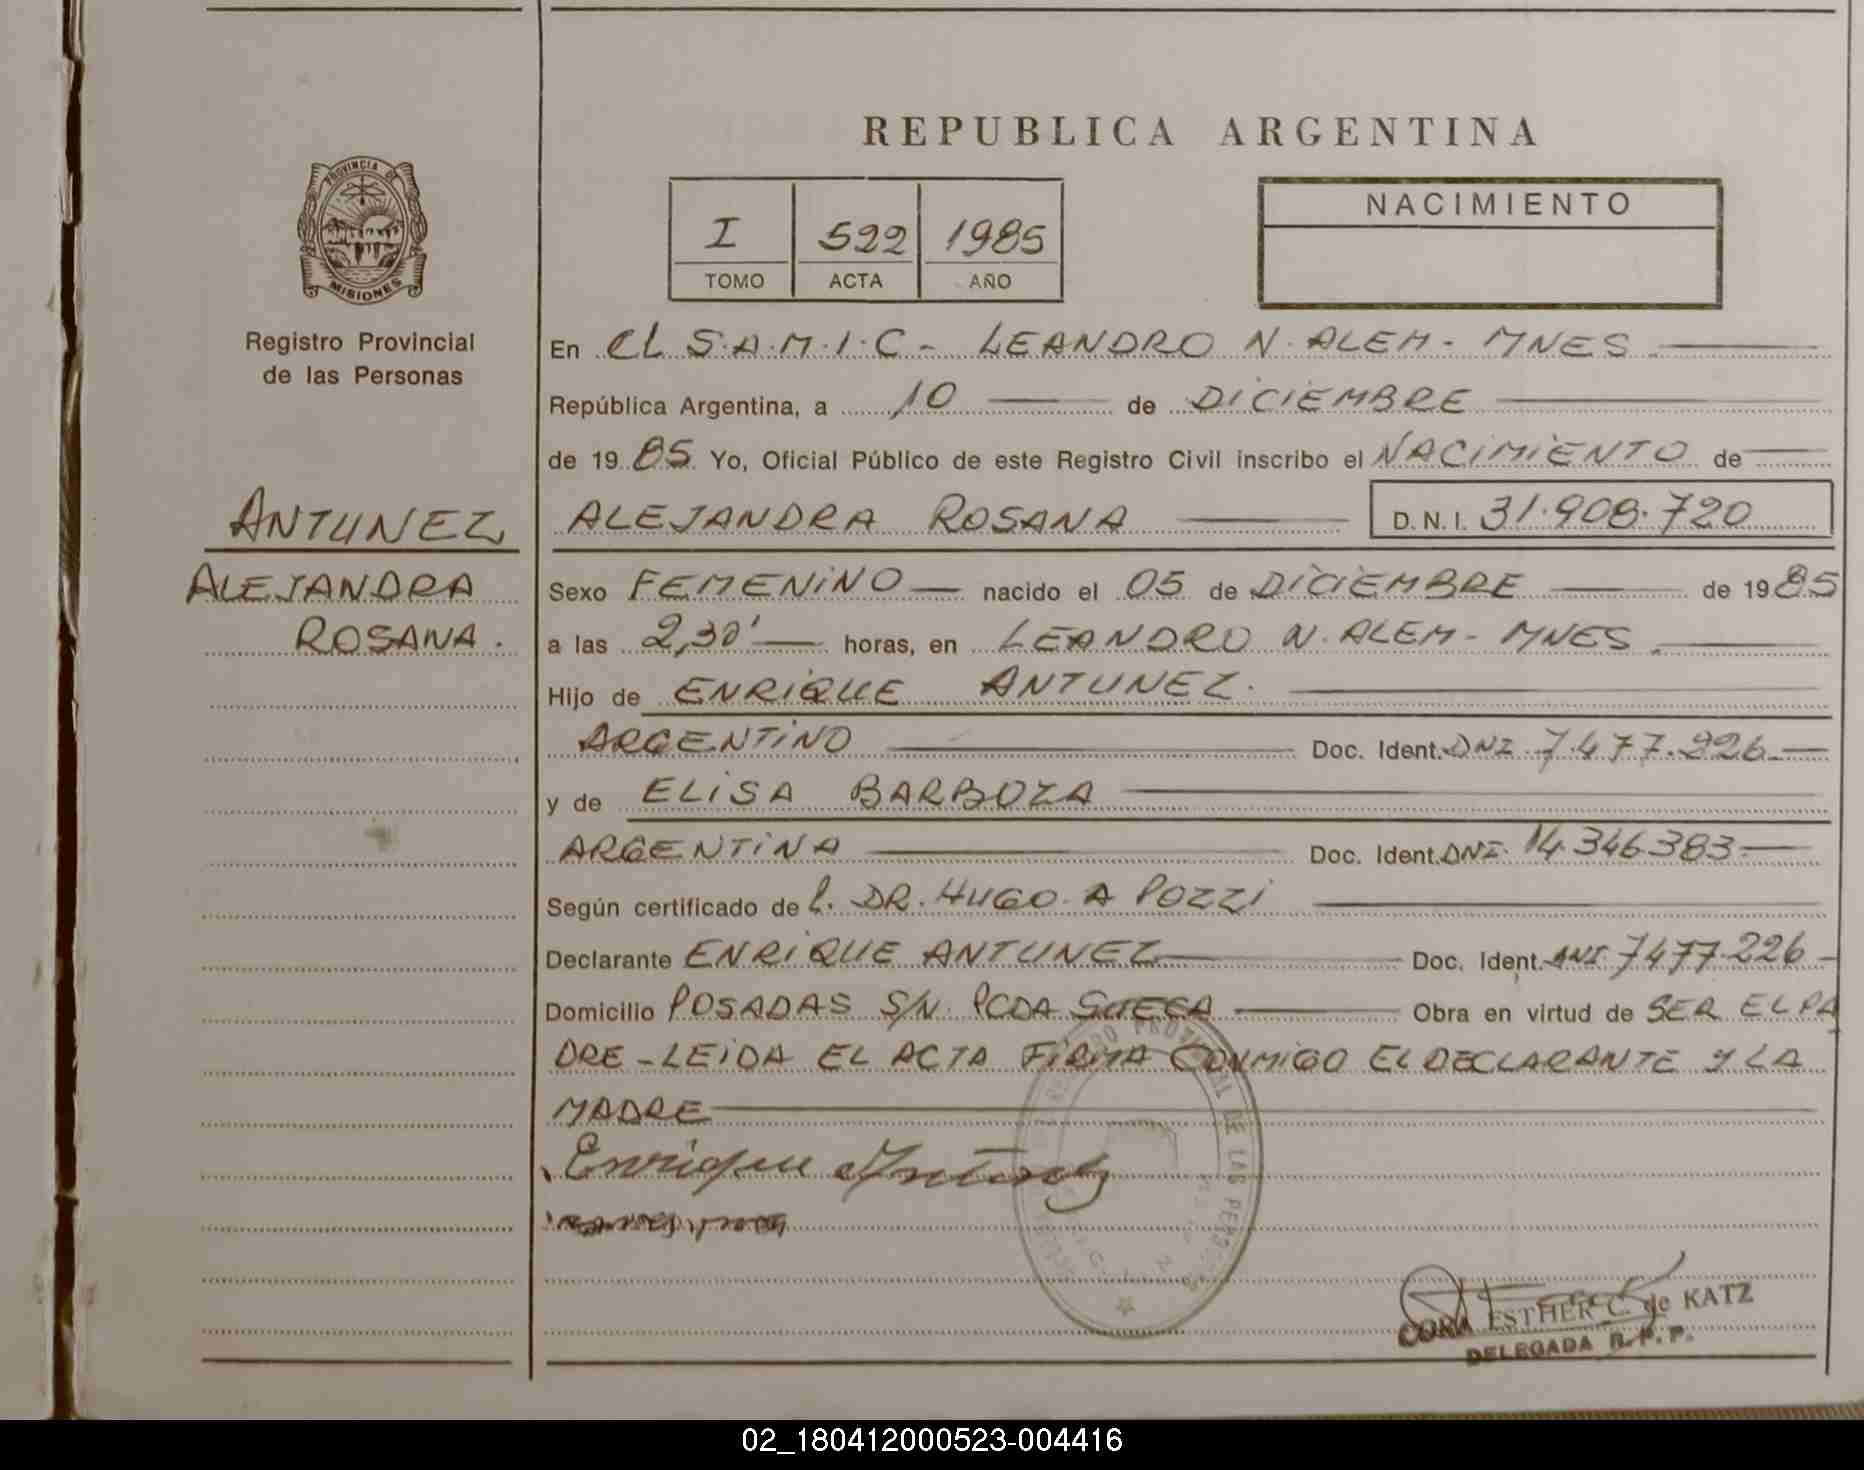 REPUBLICA ARGENTINA
PROVINCIA DE
MISIONES
Registro Provincial
de las Personas
I 522 1985
TOMO ACTA AÑO
NACIMIENTO
ANTUNEZ
ALEJANDRA
ROSANA.
En EL S.A.M.I.C- LEANDRO N. ALEM- MNES.
República Argentina, a 10 de DICIEMBRE
de 19 85 Yo, Oficial Público de este Registro Civil inscribo el NACIMIENTO de
ALEJANDRA ROSANA D.N.I. 31.908.720
Sexo FEMENINO nacido el 05 de DICIEMBRE de 19 85
a las 2,30' horas, en LEANDRO N. ALEM- MNES.
Hijo de ENRIQUE ANTUNEZ.
ARGENTINO Doc. Ident. DNI 7.477.226
y de ELISA BARBOZA
ARGENTINA Doc. Ident. DNI. 14.346.383
Según certificado de DR. HUGO A POZZI
Declarante ENRIQUE ANTUNEZ Doc. Ident. DNI 7477.226
Domicilio POSADAS S/N. PCDA SUECA Obra en virtud de SER EL PA
DRE-LEIDA EL ACTA FIRMA CONMIGO EL DECLARANTE Y LA
MADRE
Enrique Antunez
CORA ESTHER C. de KATZ
DELEGADA R.P.P.
02_180412000523-004416